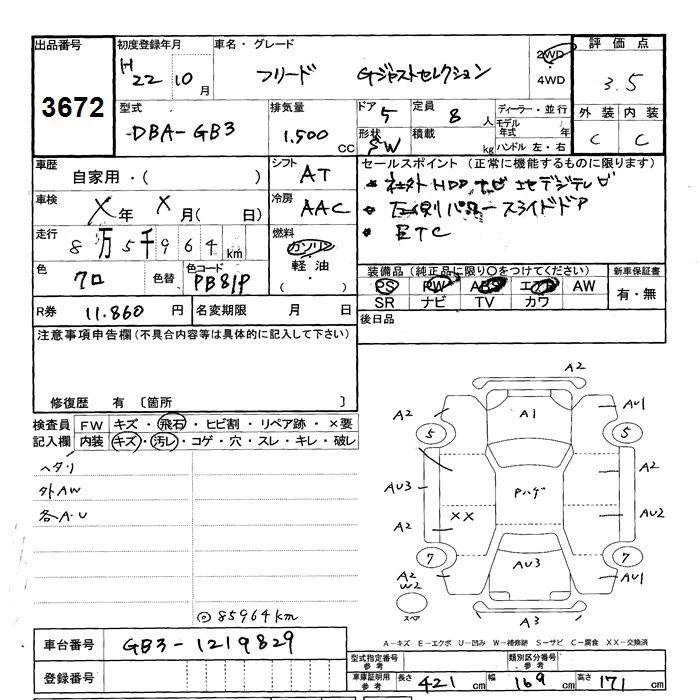 出品番号 初度登録年月 車名・グレード 評価点
3672
H22 10月 フリード Gジャストセレクション 2WD 4WD 3.5
型式 排気量 ドア 5 定員 8人 ディーラー・並行 外装 内装
DBA-GB3 1.500cc 形状 SW 積載 kg モデル年式 年 ハンドル 左・右 C C
車歴 シフト セールスポイント (正常に機能するものに限ります)
自家用・( ) AT ・社外HDDナビ 地デジテレビ
車検 X年 X月( 日) 冷房 AAC ・左側パワースライドドア
走行 8万5千964km 燃料 ガソリン 軽油 ( ) ・ETC
色 クロ 色替 色コード PB81P 装備品 (純正品に限り○をつけてください) 新車保証書
PS PW ABS エアB AW 有・無
R券 11.860円 名変期限 月 日 SR ナビ TV カワ
注意事項申告欄 (不具合内容等は具体的に記入して下さい) 後日品
修復歴 有 〔箇所 〕
検査員記入欄 FW キズ・飛石・ヒビ割・リペア跡・×要
内装 キズ・汚レ・コゲ・穴・スレ・キレ・破レ
ヘタリ
外AW
各A・U
◎85964km
A2
A2 A1 AU1
5 5
A2
AU3 Pハゲ AU2
A2 XX
7 7
A2 W2 AU3 AU1
スペア A3
A-キズ E-エクボ U-凹み W-補修跡 S-サビ C-腐食 XX-交換済
車台番号 GB3-1219829
型式指定番号 参考 類別区分番号 参考
登録番号 車庫証明用 参考 長さ 421cm 幅 169cm 高さ 171cm